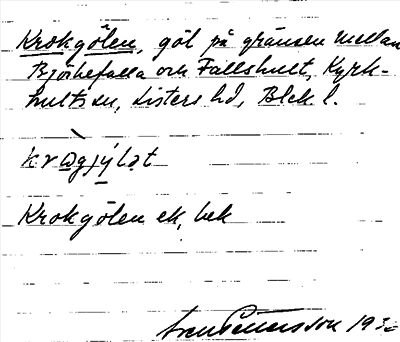 Krokgölen, göl på gränsen mellan
Björkefalla och Fallshult, Kyrk-
hults sn, Listers hd, Blek. l.
Krokgölen ek, bek
Sven Petersson 193